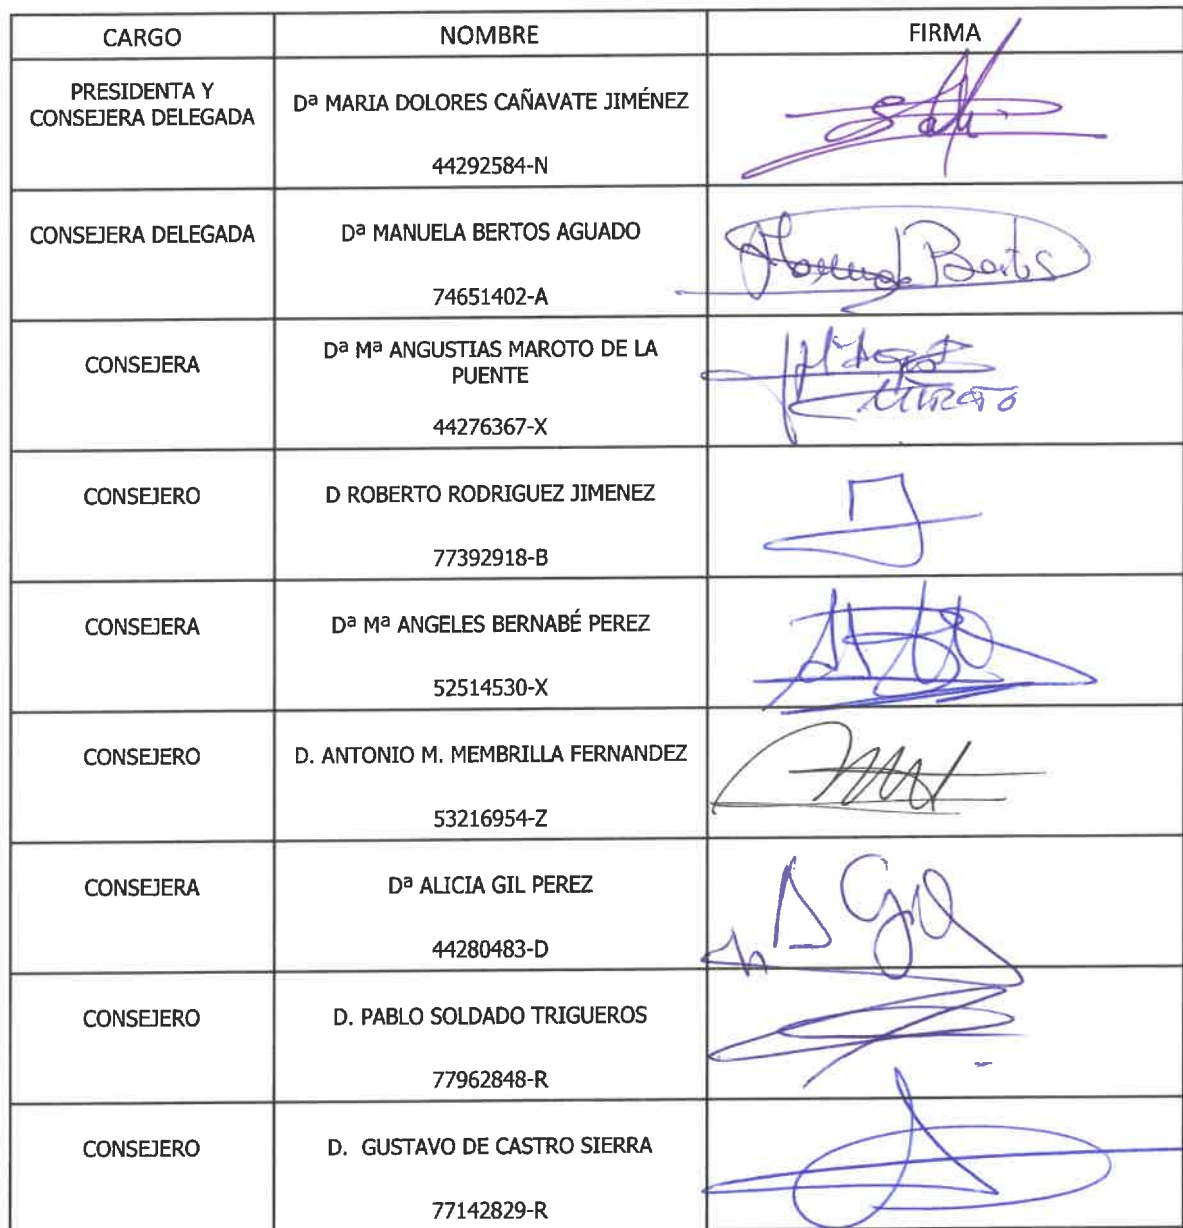 CARGO NOMBRE FIRMA
PRESIDENTA Y
CONSEJERA DELEGADA
Dª MARIA DOLORES CAÑAVATE JIMÉNEZ
44292584-N
CONSEJERA DELEGADA
Dª MANUELA BERTOS AGUADO
74651402-A
Manuela Bertos
CONSEJERA
Dª Mª ANGUSTIAS MAROTO DE LA
PUENTE
44276367-X
CONSEJERO
D ROBERTO RODRIGUEZ JIMENEZ
77392918-B
CONSEJERA
Dª Mª ANGELES BERNABÉ PEREZ
52514530-X
CONSEJERO
D. ANTONIO M. MEMBRILLA FERNANDEZ
53216954-Z
CONSEJERA
Dª ALICIA GIL PEREZ
44280483-D
A Gil
CONSEJERO
D. PABLO SOLDADO TRIGUEROS
77962848-R
CONSEJERO
D. GUSTAVO DE CASTRO SIERRA
77142829-R